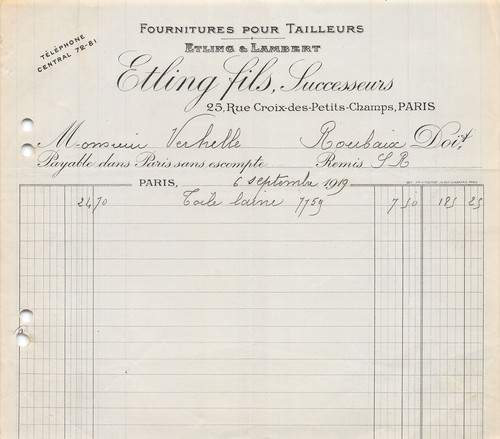 FOURNITURES POUR TAILLEURS
TÉLÉPHONE
CENTRAL 72-81
ETLING & LAMBERT
Etling fils, Successeurs
25, Rue Croix-des-Petits-Champs, PARIS
Monsieur Verhelle Roubaix Doit
Payable dans Paris sans escompte Remis S R
PARIS, 6 septembre 1919
24,70 Toile laine 7759 7 50 185 25